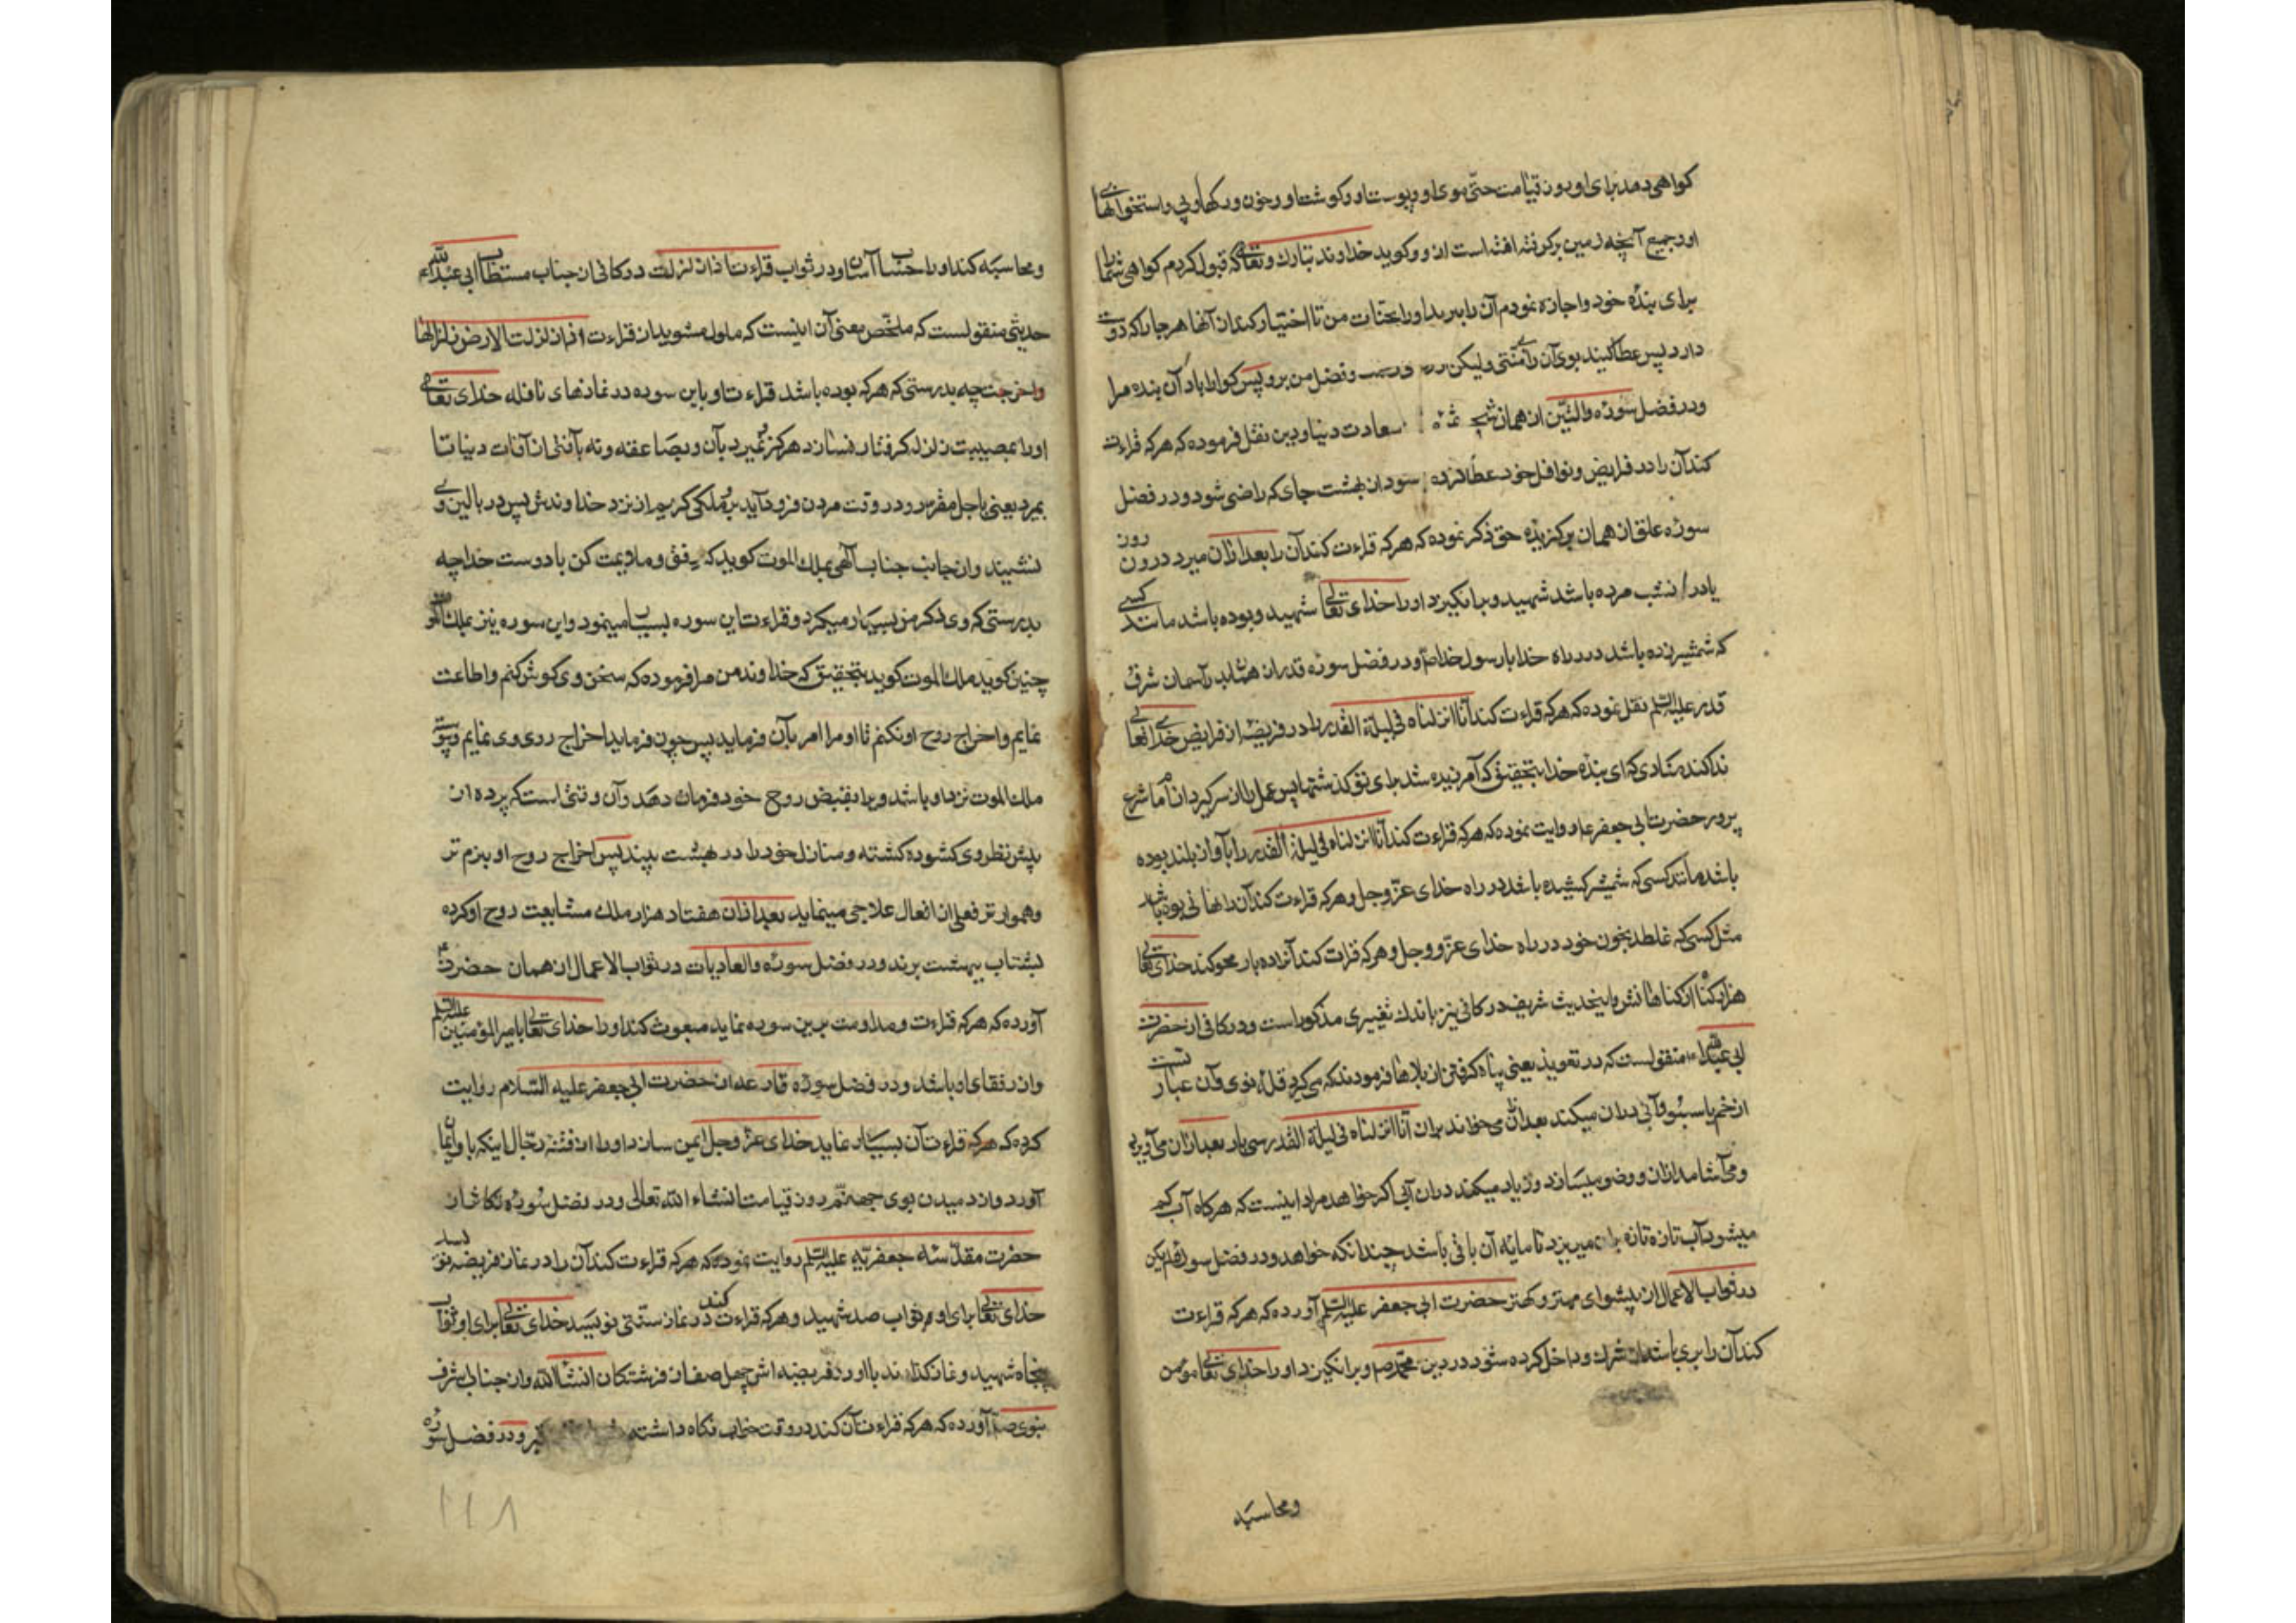 کواهی دهد برای او روز قیامت حتی موی او و پوست او و کوشت او و خون و رکها و پی و استخوانهای
او و جمیع آنچه زمین برکرفته است از او و کوید خداوند تبارک و تعالی که قبول کردم کواهی شما را
برای بنده خود و اجازه نمودم آن را ببرید او را بجنات من تا اختیار کند از آنها هر جا را که دوست
دارد پس عطا کنید بوی آن را بی منتی ولیکن و فضل من برو پس کوارا باد آن بنده مرا
و در فضل سوره والتین از همان سعادت دنیا و دین نقل فرموده که هرکه قراءت
کند آن را در فرایض و نوافل خود عطا کرده شود از بهشت جای که راضی شود و در فضل
سوره علق از همان برکزیده حق ذکر نموده که هرکه قراءت کند آن را بعد از آن میرد در روز
یا در شب مرده باشد شهید و برانکیزد او را خدای تعالی شهید و بوده باشد مانند کسی
که شمشیر زده باشد در راه خدا با رسول خدا ص و در فضل سوره قدر از آسمان شرف
قدر علیه السلم نقل نموده که هرکه قراءت کند انا انزلناه فی لیلة القدر را در فریضه از فرایض خدای تعالی
ندا کند منادی که ای بنده خدا بتحقیق که آمرزیده شد برای تو کذشتها پس عمل را از سر کیر و از امام شرع
پرور حضرت ابی جعفر ع روایت نموده که هرکه قراءت کند انا انزلناه فی لیلة القدر را بآواز بلند بوده
باشد مانند کسی که شمشیر کشیده باشد در راه خدای عز و جل و هرکه قراءت کند آن را نهانی بوده باشد
مثل کسی که غلطد بخون خود در راه خدای عز و جل و هرکه قرات کند آنرا ده بار محو کند خدای تعالی
هزار کناه از کناهانش و این حدیث شریف در کافی نیز باندک تغییری مذکور است و در کافی از حضرت
ابی عبدالله ع منقولست که در تعویذ یعنی پناه کرفتن از بلاها فرمودند که می کیرد قله نوی و آن عبارتست
از خم یا سبو و آبی در آن میکند بعد از آن می خواند بر آن انا انزلناه فی لیلة القدر سی بار بعد از آن می آویزد
و می آشامد از آن و وضو میسازد و زیاد میکند در آن آبی اکر خواهد مراد اینست که هرکاه آب کم
میشود آب تازه تازه بر آن میریزد تا مایه آن باقی باشد چندانکه خواهد و در فضل سوره لم یکن
در ثواب الاعمال از پیشوای مهتر و کهتر حضرت ابی جعفر علیه السلم آورده که هرکه قراءت
کند آن را بری باشد از شرک و داخل کرده شود در دین محمد ص و برانکیزد او را خدای تعالی مؤمن
و محاسبه
و محاسبه کند او را حسابا آسان و در ثواب قراءت اذا زلزلت در کافی از جناب مستطاب ابی عبدالله ع
حدیثی منقولست که ملخص معنی آن اینست که ملول مشوید از قراءت اذا زلزلت الارض زلزالها
و اخرجت چه بدرستی که هرکه بوده باشد قراءت او باین سوره در نمازهای نافله خدای تعالی
او را بمصیبت زلزله کرفتار نسازد هرکز نمیرد بآن و بصاعقه و نه بآفتی از آفات دنیا تا
بمیرد یعنی باجل مقرر و در وقت مردن فرود آید برو ملکی کریم از نزد خداوندش پس در بالین وی
نشیند و از جانب جناب آلهی بملک الموت کوید که رفق و مادیمت کن با دوست خدا چه
بدرستی که وی ذکر من بسیار میکرد و قراءت این سوره بسیار مینمود و این سوره نیز بملک الموت
چنین کوید ملک الموت کوید بتحقیق که خداوند من مرا فرموده که سخن وی کوش کنم و اطاعت
نمایم و اخراج روح او نکنم تا او مرا امر بآن فرماید پس چون فرماید اخراج روح وی نمایم و پیوسته
ملک الموت نزد او باشد و برا بقبض روح خود فرمان دهد و آن وقتی است که پرده از
پیش نظر وی کشوده کشته و منازل خود را در بهشت بیند پس اخراج روح او بنرم تر
و هموارتر فعلی از افعال علاجی مینماید بعد از آن هفتاد هزار ملک مشایعت روح او کرده
بشتاب ببهشت برند و در فضل سوره والعادیات در ثواب الاعمال از همان حضرت
آورده که هرکه قراءت و مداومت برین سوره نماید مبعوث کند او را خدای تعالی با امیرالمؤمنین علیه السلم
و از رفقای او باشد و در فضل سوره قارعه از حضرت ابی جعفر علیه السلام روایت
کرده که هرکه قراءت آن بسیار نماید خدای عز و جل ایمن سازد او را از فتنه دجال اینکه باو ایمان
آورد و از دمیدن بوی جهنم روز قیامت انشاء الله تعالی و در فضل سوره تکاثر از
حضرت مقدسه جعفریه علیه السلم روایت نموده که هرکه قراءت کند آن را در نماز فریضه نویسد
خدای تعالی برای او ثواب صد شهید و هرکه قراءت کند در نماز سنتی نویسد خدای تعالی برای او ثواب
پنجاه شهید و نماز کذارند با او در فریضه اش چهل صف از فرشتکان انشاالله و از جناب اشرف
نبوی ص آورده که هرکه قراءت آن کند در وقت خواب نکاه داشته قبر و در فضل سوره
۱۱۸